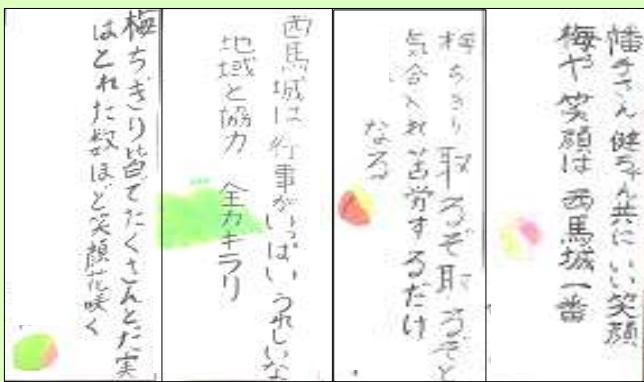 幡手さん健ちゃん共にいい笑顔
梅や笑顔は西馬城一番
梅ちぎり取るぞ取るぞと
気合入れ苦労するだけ
なる
西馬城は行事がいっぱいうれしいな
地域と協力 全力キラリ
梅ちぎり皆でたくさんとた実
はとれた数ほど笑顔花咲く